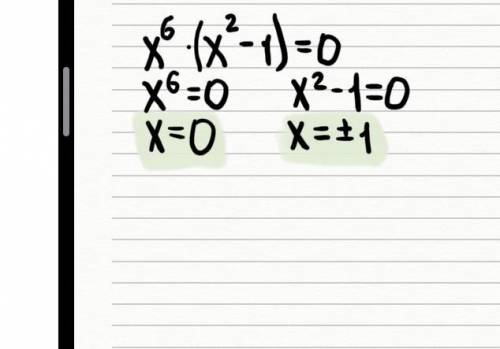 x⁶·(x²-1)=0
x⁶=0 x²-1=0
x=0 x=±1